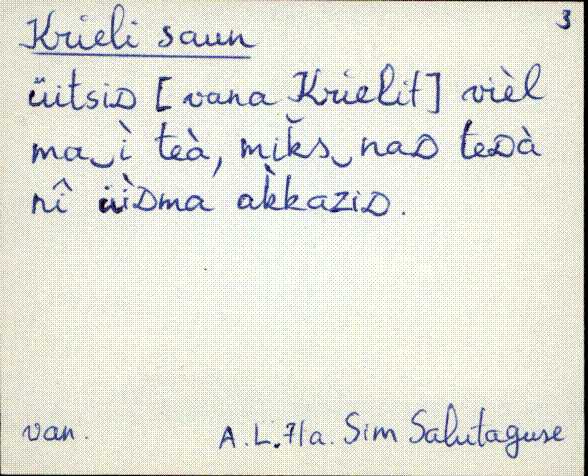 3
Krieli saun
üitsiD [vana Krielit] vièl
ma‿ì teà, mikš‿naD teDà
nî üìDma ak̀kaziD.
van. A.L. 71a. Sim Salutaguse